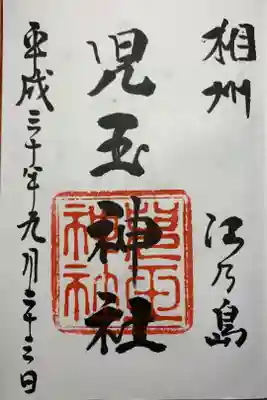 相州 江乃島
児玉神社
平成三十年九月二十三日